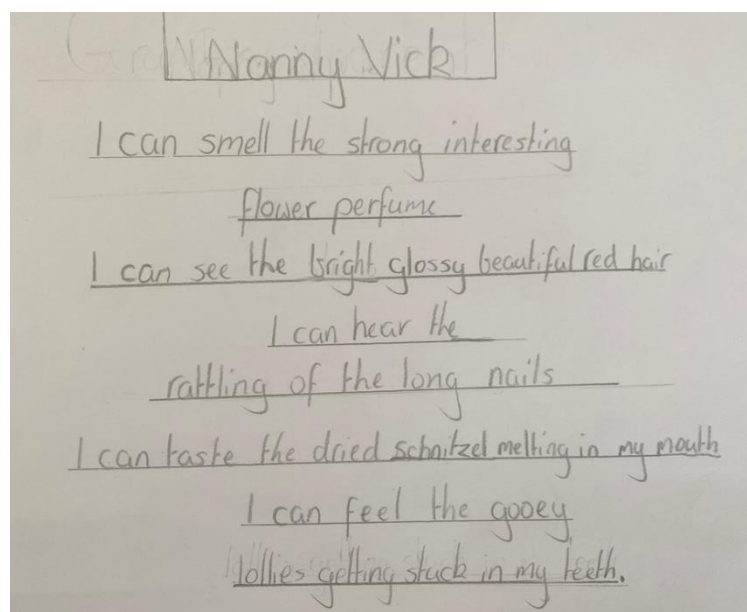 Nanny Vick
I can smell the strong interesting
flower perfume
I can see the bright glossy beautiful red hair
I can hear the
rattling of the long nails
I can taste the dried schnitzel melting in my mouth
I can feel the gooey
lollies getting stuck in my teeth.